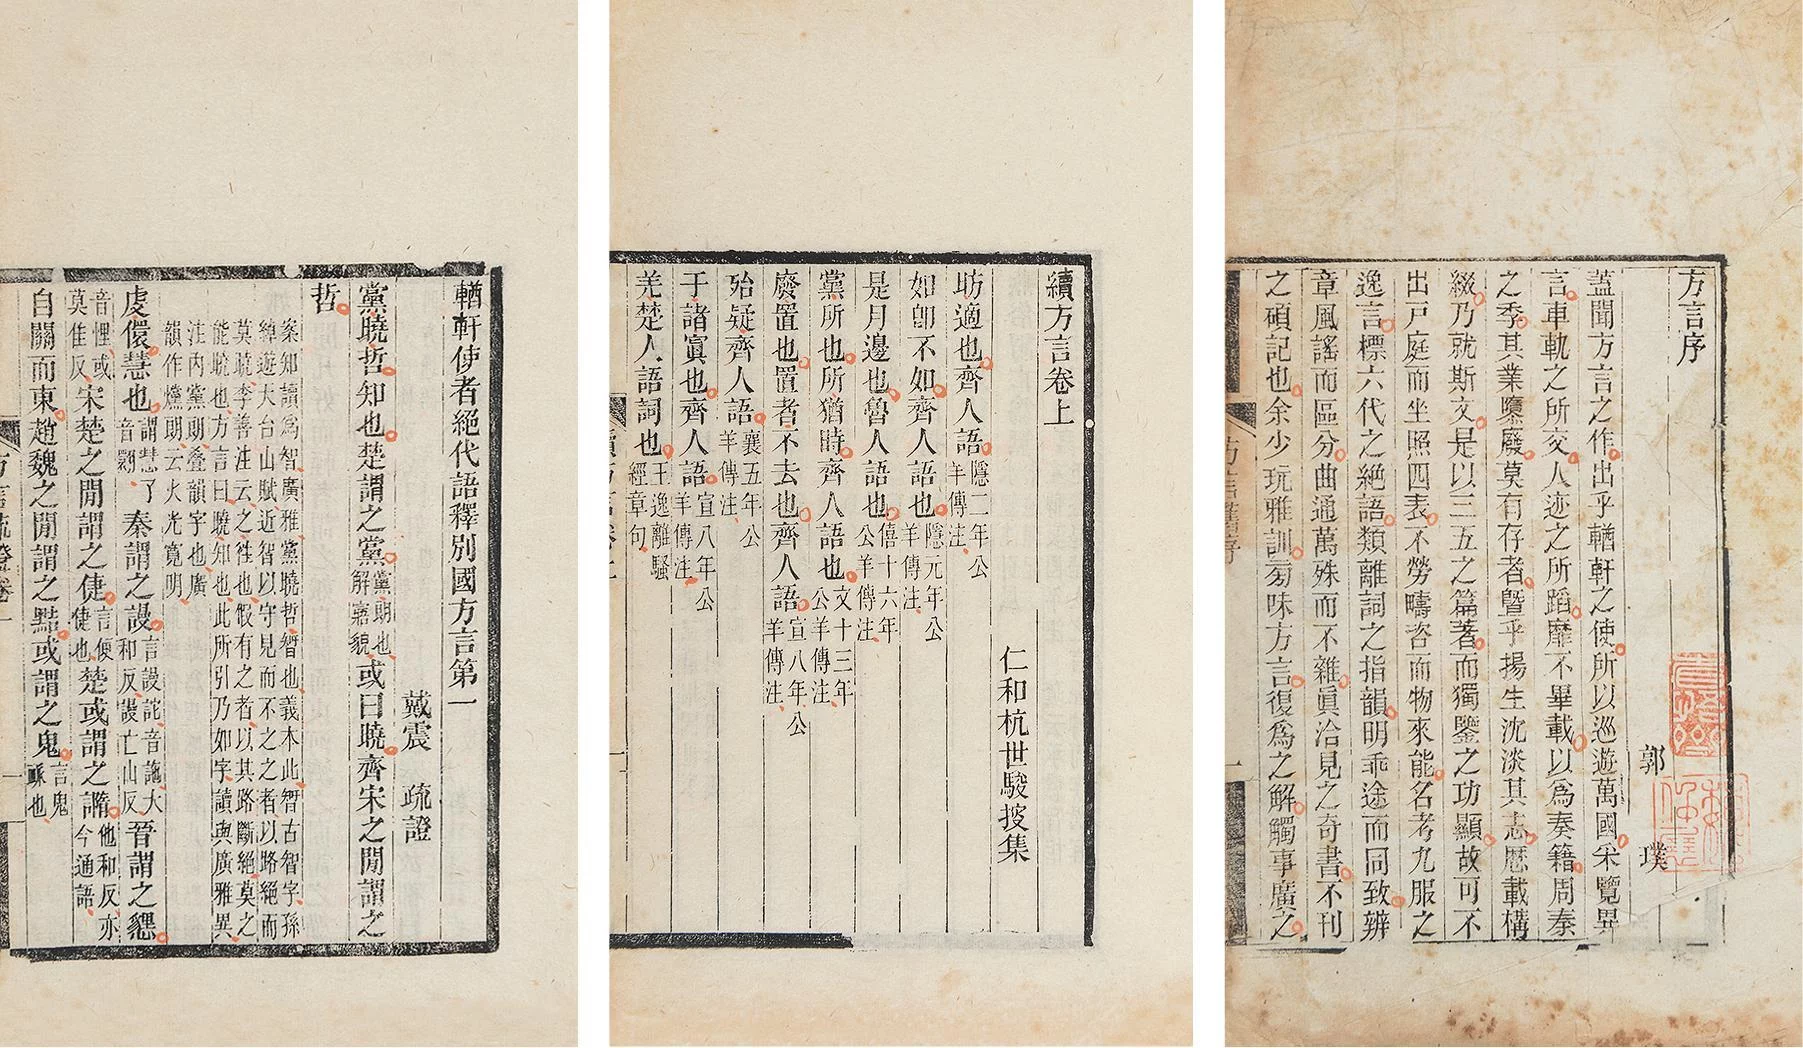 方言序
郭璞
蓋聞方言之作出乎輶軒之使所以巡遊萬國采覽異
言車軌之所交人迹之所蹈靡不畢載以爲奏籍周秦
之季其業隳廢莫有存者曁乎揚生沈淡其志歷載構
綴乃就斯文是以三五之篇著而獨鑒之功顯故可不
出戸庭而坐照四表不勞疇咨而物來能名考九服之
逸言標六代之絕語類離詞之指韻明乖途而同致辨
章風謠而區分曲通萬殊而不雜眞洽見之奇書不刊
之碩記也余少玩雅訓旁味方言復爲之解觸事廣之
續方言卷上
仁和杭世駿披集
昉適也齊人語隱二年公羊傳注
如卽不如齊人語也隱元年公羊傳注
是月邊也魯人語也僖十六年公羊傳注
黨所也所猶時齊人語也文十三年公羊傳注
廢置也置者不去也齊人語宣八年公羊傳注
殆疑齊人語襄五年公羊傳注
于諸寘也齊人語宣八年公羊傳注
羌楚人語詞也王逸離騷經章句
輶軒使者絕代語釋別國方言第一
戴震 疏證
黨曉哲知也楚謂之黨黨朗也解寤貌或曰曉齊宋之閒謂之
哲
案知讀爲智廣雅黨曉哲𣉻也義本此𣉻古智字孫
綽遊天台山賦近智以守見而不之之者以路絕而
莫曉李善注云之往也假有之者以其路斷絕莫之
能曉也方言曰曉知也此所引乃如字讀與廣雅異
注內黨朗疊韻字也廣
韻作爣朗云火光寛明
虔儇慧也謂慧了音翾秦謂之謾言謾詑音詑大和反謾亡山反晉謂之𢠿
音悝或莫佳反宋楚之閒謂之倢言便倢也楚或謂之䜏他和反亦今通語
自關而東趙魏之閒謂之黠或謂之鬼言鬼䀎也